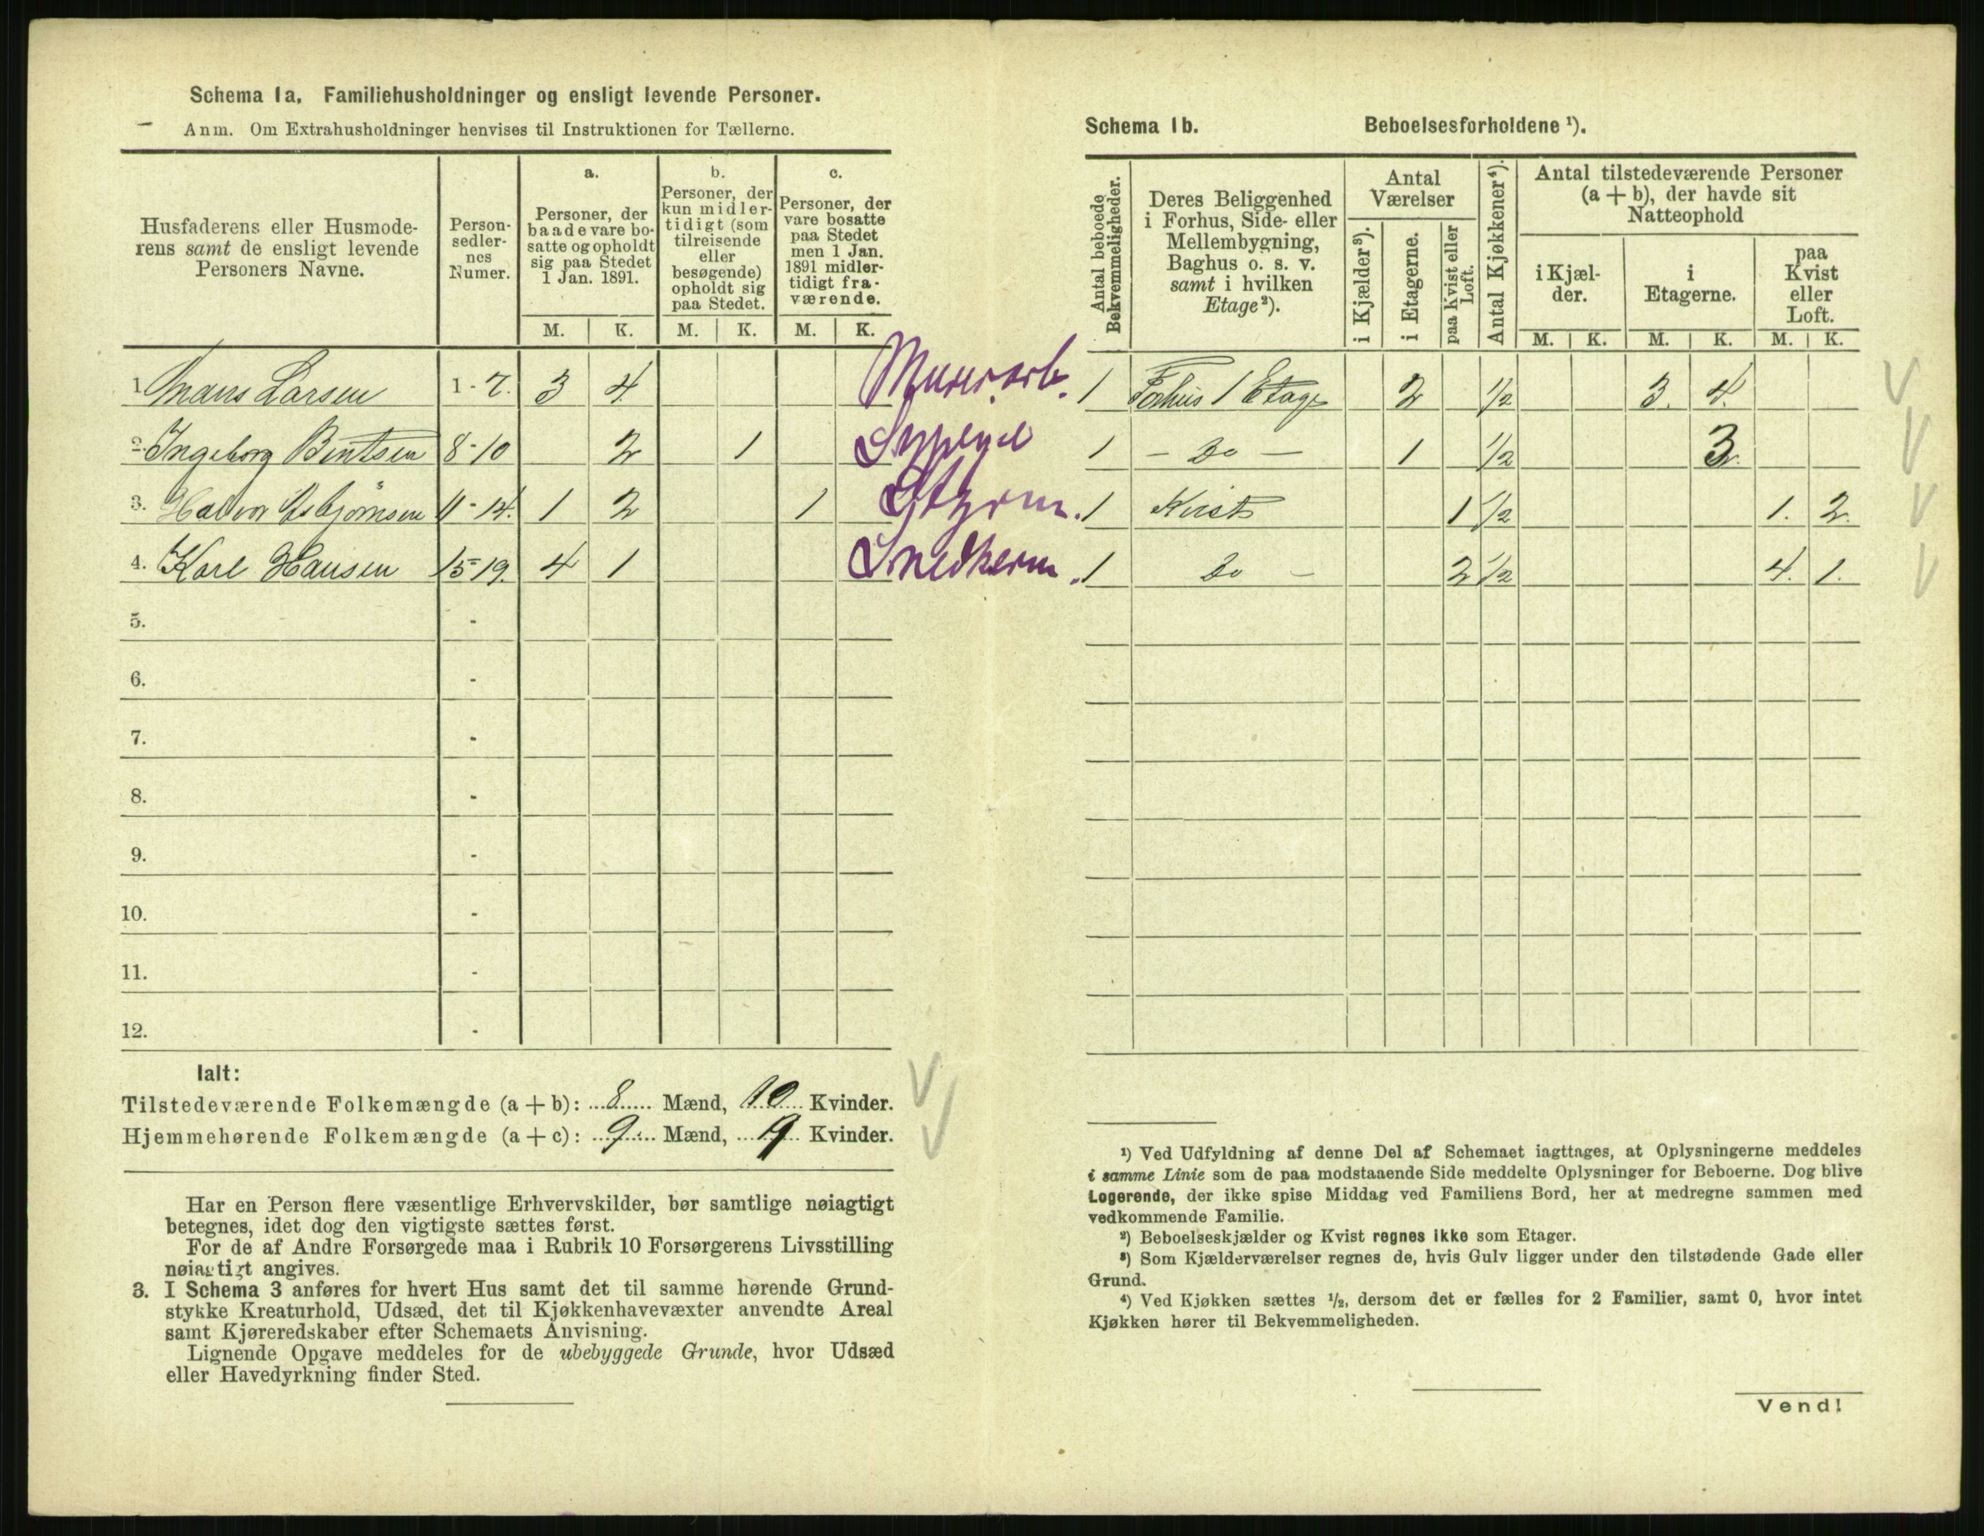 Schema 1a. Familiehusholdninger og ensligt levende Personer.
Anm. Om Extrahusholdninger henvises til Instruktionen for Tællerne.
Husfaderens eller Husmoderens samt de ensligt levende Personers Navne.
Personsedlernes Numer.
a.
Personer, der baade vare bosatte og opholdt sig paa Stedet 1 Jan. 1891.
b.
Personer, der kun midlertidigt (som tilreisende eller besøgende) opholdt sig paa Stedet.
c.
Personer, der vare bosatte paa Stedet men 1 Jan. 1891 midlertidigt fraværende.
M. K. M. K. M. K.
1. Hans Larsen 1-7. 3 4. Murerarb.
2. Ingeborg Bentsen 8-10 2 1 Sypige
3. Halvor Asbjørnsen 11-14. 1 2 1 Styrm.
4. Karl Hansen 15-19. 4 1 Snedkerm.
5. -
6. -
7. -
8. -
9. -
10. -
11. -
12. -
Ialt:
Tilstedeværende Folkemængde (a + b): 8 Mænd, 10 Kvinder.
Hjemmehørende Folkemængde (a + c): 9. Mænd, 9 Kvinder.
Har en Person flere væsentlige Erhvervskilder, bør samtlige nøiagtigt
betegnes, idet dog den vigtigste sættes først.
For de af Andre Forsørgede maa i Rubrik 10 Forsørgerens Livsstilling
nøiagtigt angives.
3. I Schema 3 anføres for hvert Hus samt det til samme hørende Grund-
stykke Kreaturhold, Udsæd, det til Kjøkkenhavevæxter anvendte Areal
samt Kjøreredskaber efter Schemaets Anvisning.
Lignende Opgave meddeles for de ubebyggede Grunde, hvor Udsæd
eller Havedyrkning finder Sted.
Schema 1b. Beboelsesforholdene ¹).
Antal beboede Bekvemmeligheder.
Deres Beliggenhed i Forhus, Side- eller Mellembygning, Baghus o. s. v. samt i hvilken Etage²).
Antal Værelser
i Kjælder³).
i Etagerne.
paa Kvist eller Loft.
Antal Kjøkkener⁴).
Antal tilstedeværende Personer (a + b), der havde sit Natteophold
i Kjælder.
i Etagerne.
paa Kvist eller Loft.
M. K. M. K. M. K.
1 Forhus 1 Etage 2 1/2 3. 4.
1 - Do - 1 1/2 3.
1 Kvist 1 1/2 1. 2.
1 Do - 2 1/2 4. 1.
¹) Ved Udfyldning af denne Del af Schemaet iagttages, at Oplysningerne meddeles
i samme Linie som de paa modstaaende Side meddelte Oplysninger for Beboerne. Dog blive
Logerende, der ikke spise Middag ved Familiens Bord, her at medregne sammen med
vedkommende Familie.
²) Beboelseskjælder og Kvist regnes ikke som Etager.
³) Som Kjælderværelser regnes de, hvis Gulv ligger under den tilstødende Gade eller
Grund.
⁴) Ved Kjøkken sættes ½, dersom det er fælles for 2 Familier, samt 0, hvor intet
Kjøkken hører til Bekvemmeligheden.
Vend!